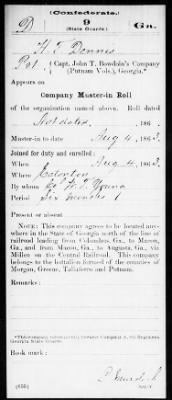 (Confederate.)
D 9 Ga.
(State Guards.)
H. T. Dennis
Pvt. Capt. John T. Bowdoin's Company
(Putnam Vols.), Georgia.*
Appears on
Company Muster-in Roll
of the organization named above. Roll dated
Not dated, 186 .
Muster-in to date Aug 4, 1863.
Joined for duty and enrolled:
When Aug 4, 1863.
Where Eatonton
By whom
Period Six months
Present or absent
NOTE: This company agrees to be located anywhere
in the State of Georgia north of the line of
railroad leading from Columbus, Ga., to Macon,
Ga., and from Macon, Ga., to Augusta, Ga., via
Millen on the Central Railroad. This company
belongs to the battalion formed of the counties of
Morgan, Greene, Taliaferro and Putnam.
Remarks:
Book mark:
(655)